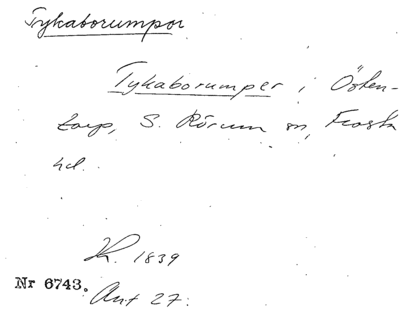 Tykaborumpor
Tykaborumper i Östen-
torp, S. Rörum sn, Frosta
hd.
K. 1839
Nr 6743.
Ant 27.